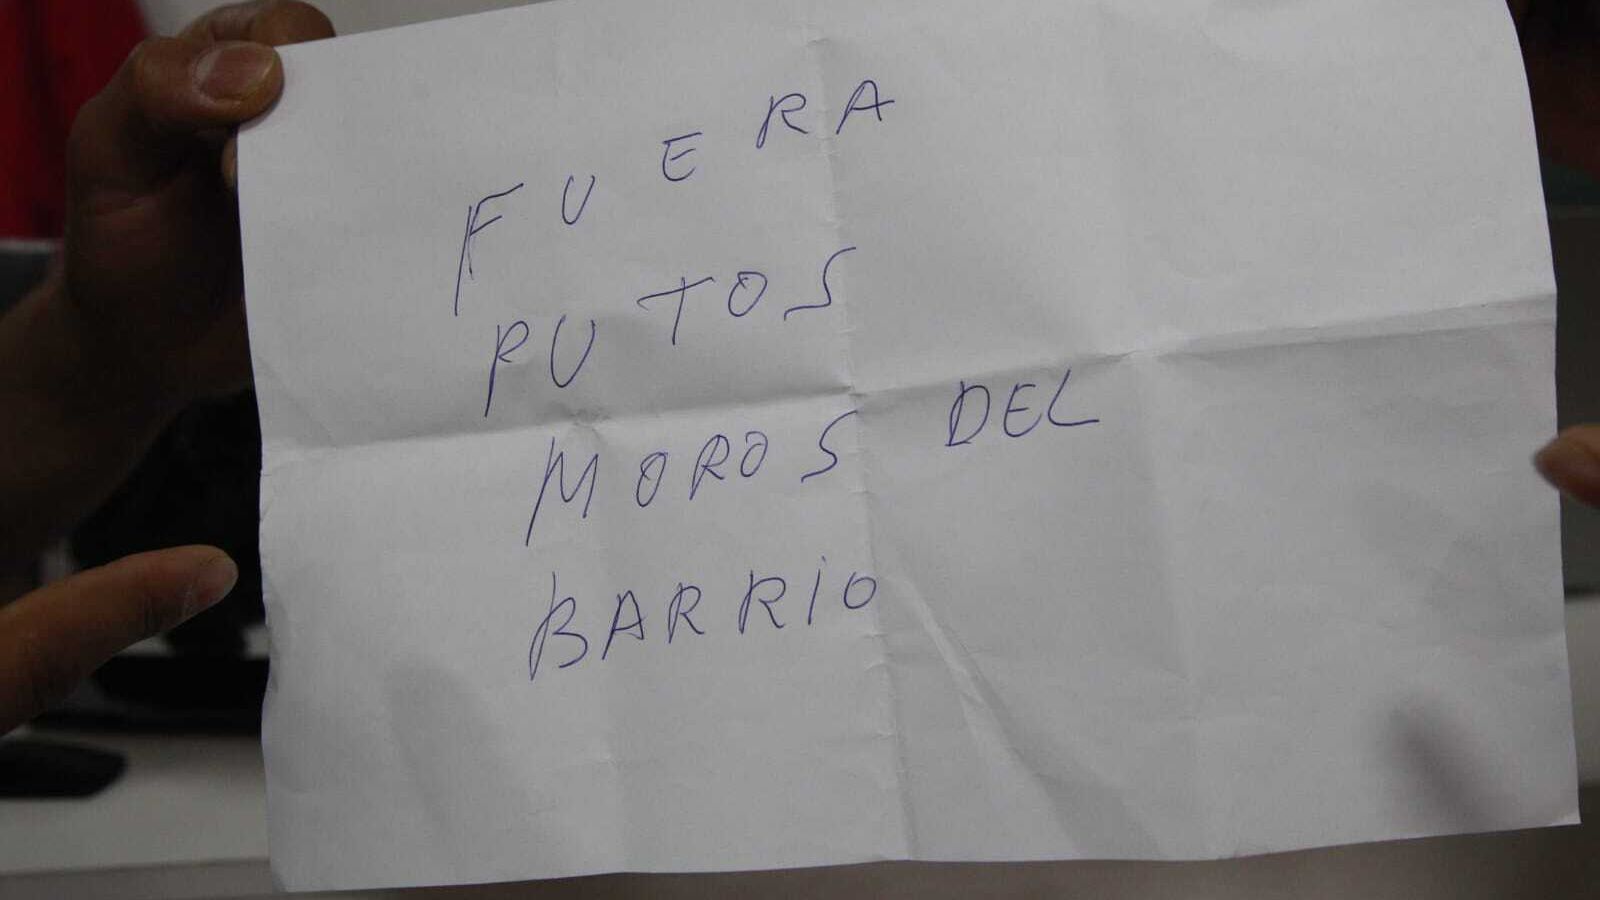 FUERA
PUTOS
MOROS DEL
BARRIO